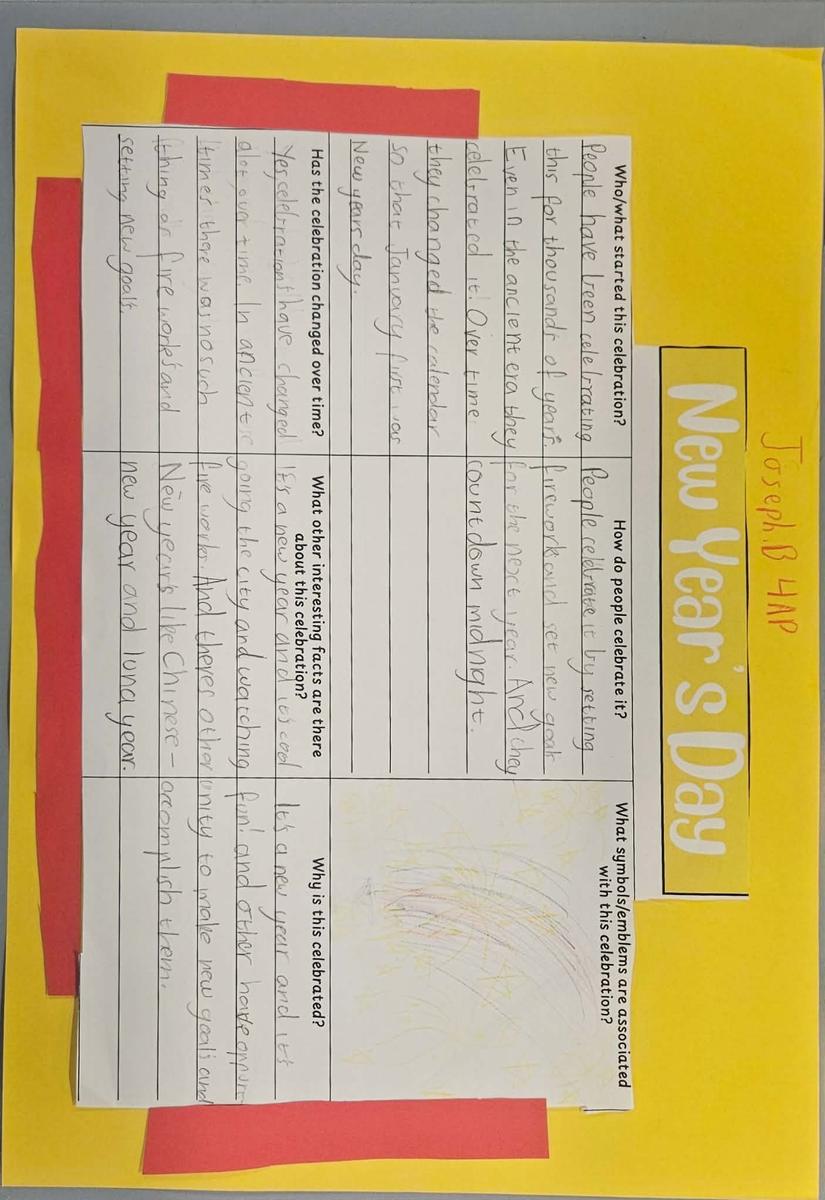 Joseph.B 4AP
New Year's Day
Who/what started this celebration?
People have been celebrating
this for thousands of years.
Even in the ancient era they
celebrated it! Over time
they changed the calendar
so that January first was
New years day.
How do people celebrate it?
People celebrate it by setting
firework and set new goals
for the next year. And they
countdown midnight.
What symbols/emblems are associated
with this celebration?
Has the celebration changed over time?
Yes celebrations have changed
alot over time. In ancient
times there was no such
thing as fire works and
setting new goals.
What other interesting facts are there
about this celebration?
It's a new year and it's cool
going the city and watching
fire works. And theres other
New years like Chinese
new year and luna year.
Why is this celebrated?
It's a new year and it's
fun! and other have oppurt-
unity to make new goals and
accomplish them.